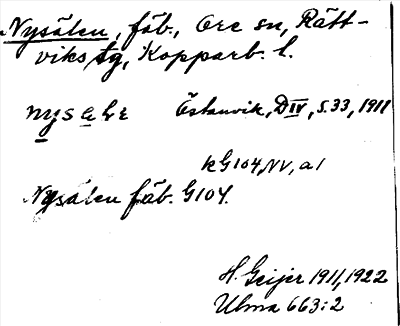 Nysälen, fäb., Ore sn, Rätt-
viks tg, Kopparb. l.
Östanvik, D IV, s. 33, 1911
kG104, NV, a1
Nysälen fäb. G104.
H. Geijer 1911, 1922
Ulma 663:2